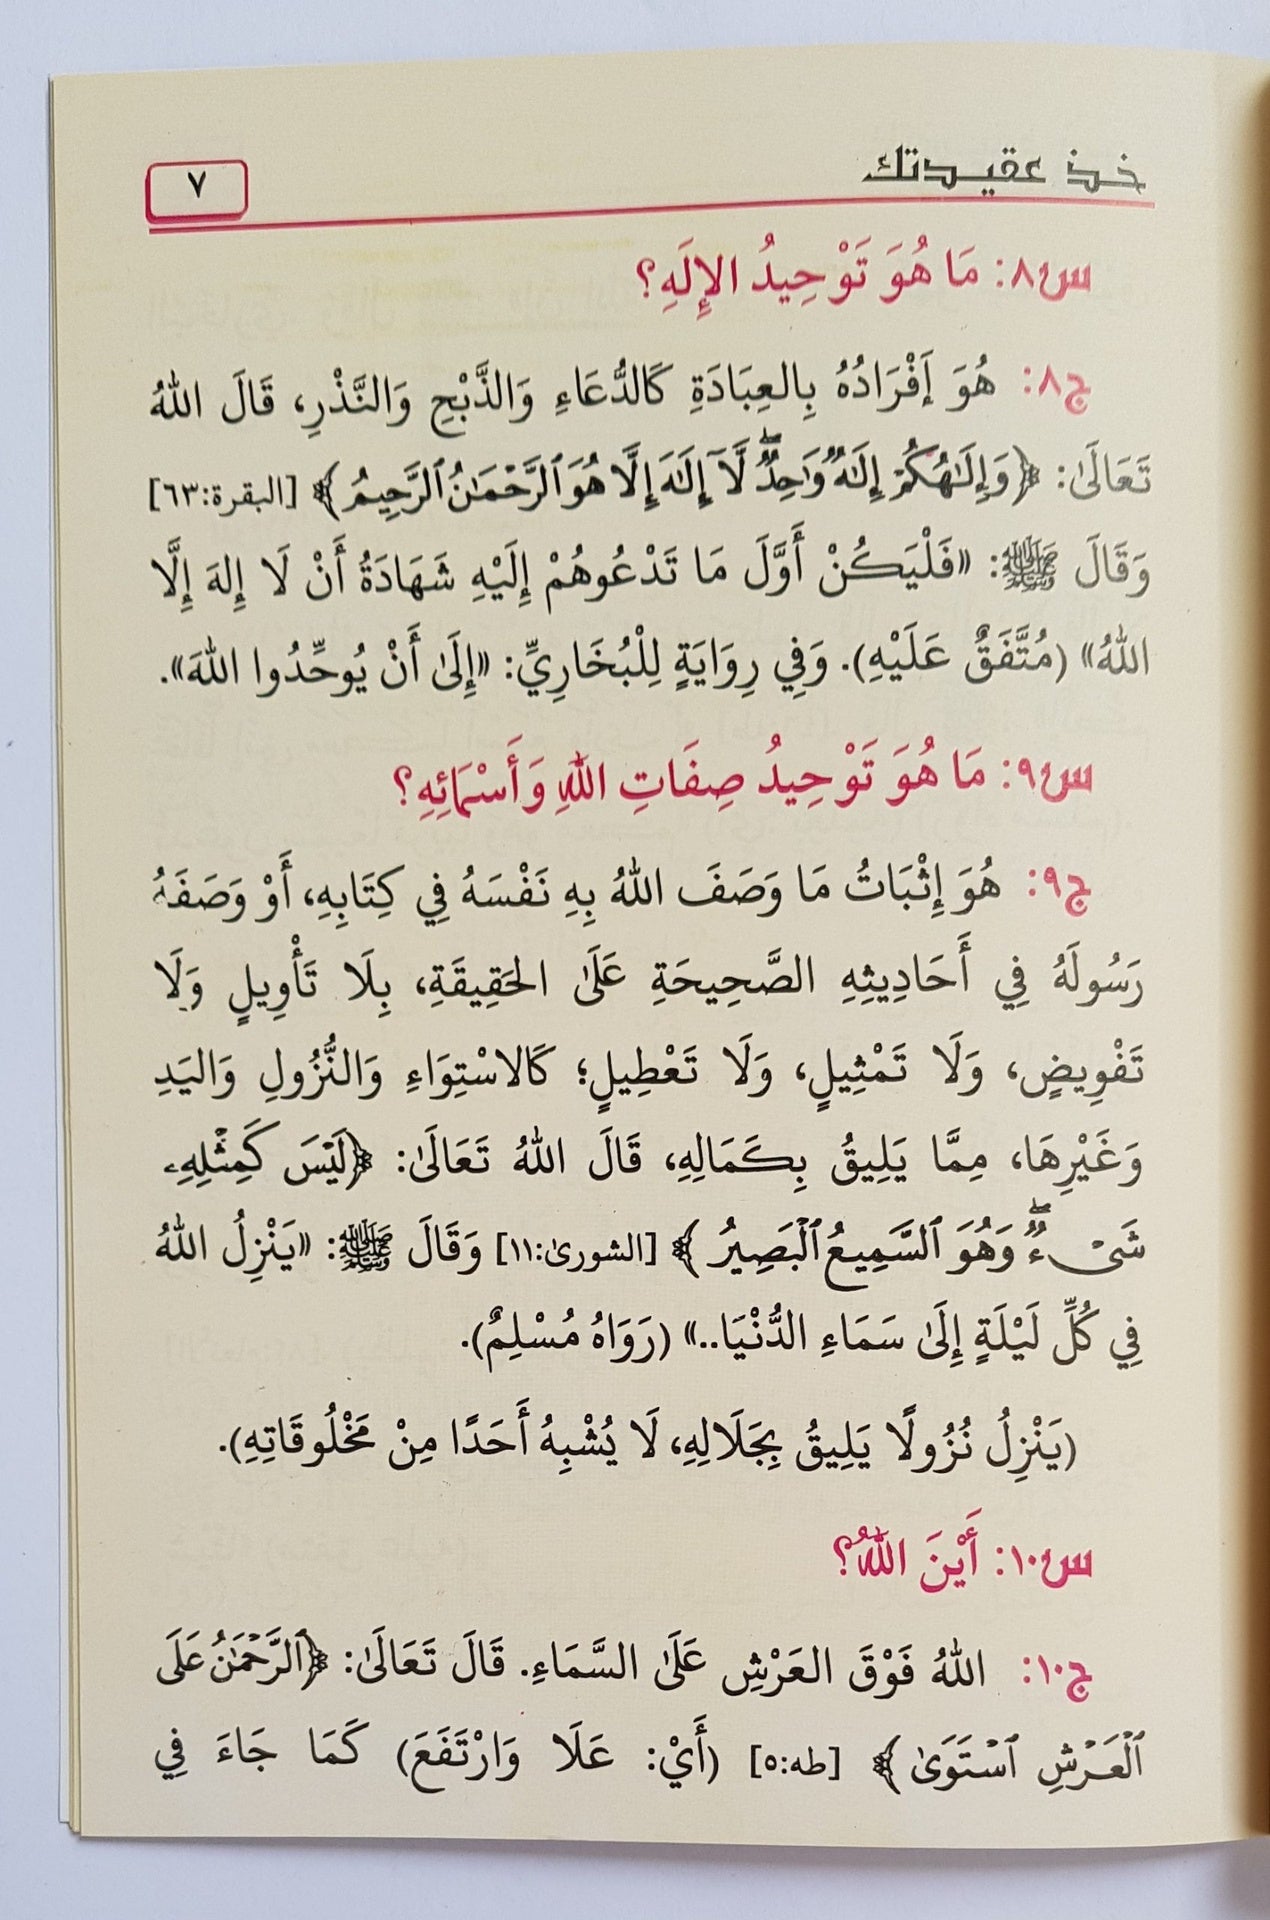 خذ عقيدتك
٧
س٨: مَا هُوَ تَوْحِيدُ الإِلَهِ؟
ج٨: هُوَ إِفْرَادُهُ بِالعِبَادَةِ كَالدُّعَاءِ وَالذَّبْحِ وَالنَّذْرِ، قَالَ اللهُ
تَعَالَىٰ: ﴿وَإِلَٰهُكُمۡ إِلَٰهٞ وَٰحِدٞۖ لَّآ إِلَٰهَ إِلَّا هُوَ ٱلرَّحۡمَٰنُ ٱلرَّحِيمُ﴾ [البقرة:٦٣]
وَقَالَ ﷺ: «فَلْيَكُنْ أَوَّلَ مَا تَدْعُوهُمْ إِلَيْهِ شَهَادَةُ أَنْ لَا إِلهَ إِلَّا
اللهُ» (مُتَّفَقٌ عَلَيْهِ). وَفِي رِوَايَةٍ لِلْبُخَارِيِّ: «إِلَىٰ أَنْ يُوحِّدُوا اللهَ».
س٩: مَا هُوَ تَوْحِيدُ صِفَاتِ اللهِ وَأَسْمَائِهِ؟
ج٩: هُوَ إِثْبَاتُ مَا وَصَفَ اللهُ بِهِ نَفْسَهُ فِي كِتَابِهِ، أَوْ وَصَفَهُ
رَسُولَهُ فِي أَحَادِيثِهِ الصَّحِيحَةِ عَلَىٰ الحَقِيقَةِ، بِلَا تَأْوِيلٍ وَلَا
تَفْوِيضٍ، وَلَا تَمْثِيلٍ، وَلَا تَعْطِيلٍ؛ كَالاسْتِوَاءِ وَالنُّزُولِ وَاليَدِ
وَغَيْرِهَا، مِمَّا يَلِيقُ بِكَمَالِهِ، قَالَ اللهُ تَعَالَىٰ: ﴿لَيۡسَ كَمِثۡلِهِۦ
شَيۡءٞۖ وَهُوَ ٱلسَّمِيعُ ٱلۡبَصِيرُ﴾ [الشورىٰ:١١] وَقَالَ ﷺ: «يَنْزِلُ اللهُ
فِي كُلِّ لَيْلَةٍ إِلَىٰ سَمَاءِ الدُّنْيَا..» (رَوَاهُ مُسْلِمٌ).
(يَنْزِلُ نُزُولًا يَلِيقُ بِجَلَالِهِ، لَا يُشْبِهُ أَحَدًا مِنْ مَخْلُوقَاتِهِ).
س١٠: أَيْنَ اللهُ؟
ج١٠: اللهُ فَوْقَ العَرْشِ عَلَىٰ السَّمَاءِ. قَالَ تَعَالَىٰ: ﴿ٱلرَّحۡمَٰنُ عَلَى
ٱلۡعَرۡشِ ٱسۡتَوَىٰ﴾ [طه:٥] (أَيْ: عَلَا وَارْتَفَعَ) كَمَا جَاءَ فِي